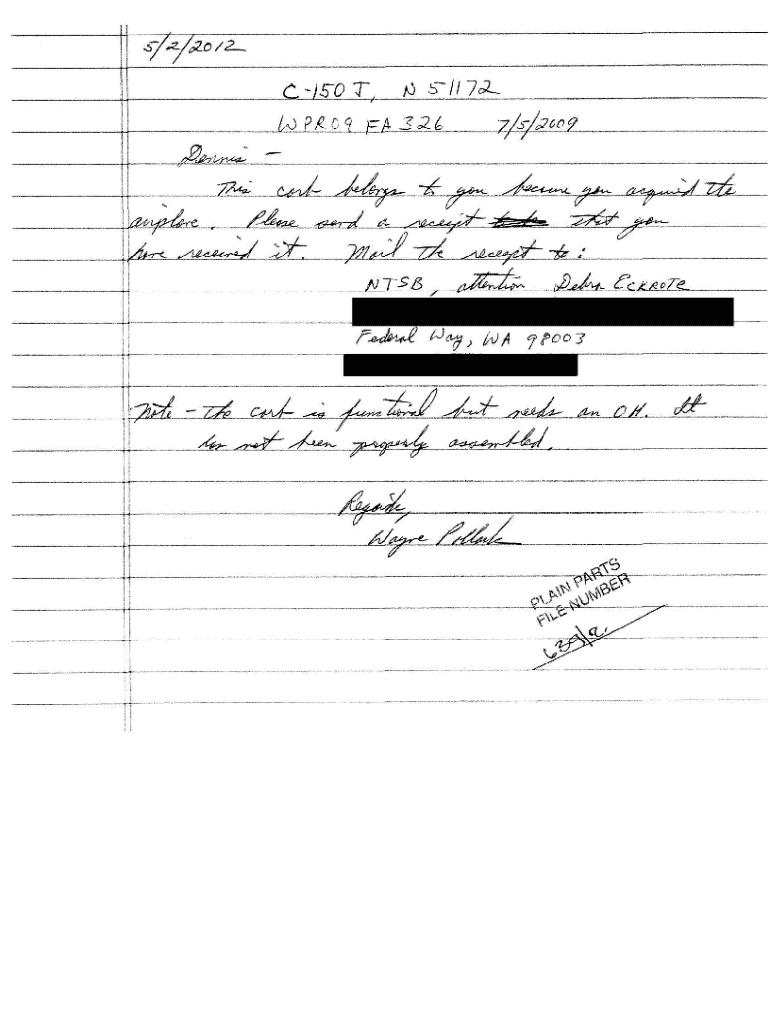 5/2/2012
C-150J, N 51172
WPR09 FA 326 7/5/2009
Dennis -
This carb belongs to you because you acquired the
airplane. Please send a receipt that you
have received it. Mail the receipt to:
NTSB, attention Debra Eckrote
Federal Way, WA 98003
Note - The carb is functional but needs an OH. It
has not been properly assembled.
Regards,
Wayne Pollack
PLAIN PARTS
FILE NUMBER